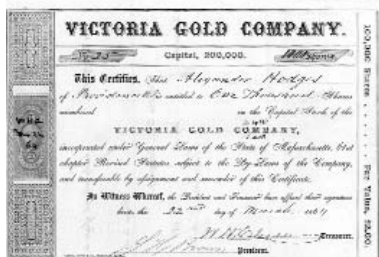 VICTORIA GOLD COMPANY.
No 35 Capital, 200,000. 1000 Shares
This Certifies, That Alexander Hodges
of Providence is entitled to One Thousand Shares
numbered in the Capital Stock of the
VICTORIA GOLD COMPANY,
incorporated under General Laws of the State of Massachusetts, 61st
chapter Revised Statutes, subject to the By-Laws of the Company,
and transferable by assignment and surrender of this Certificate.
In Witness Whereof, the President and Treasurer have affixed their signatures
hereto this 22nd day of March 1864
Treasurer.
President.
100,000 Shares Par Value, $2.00.